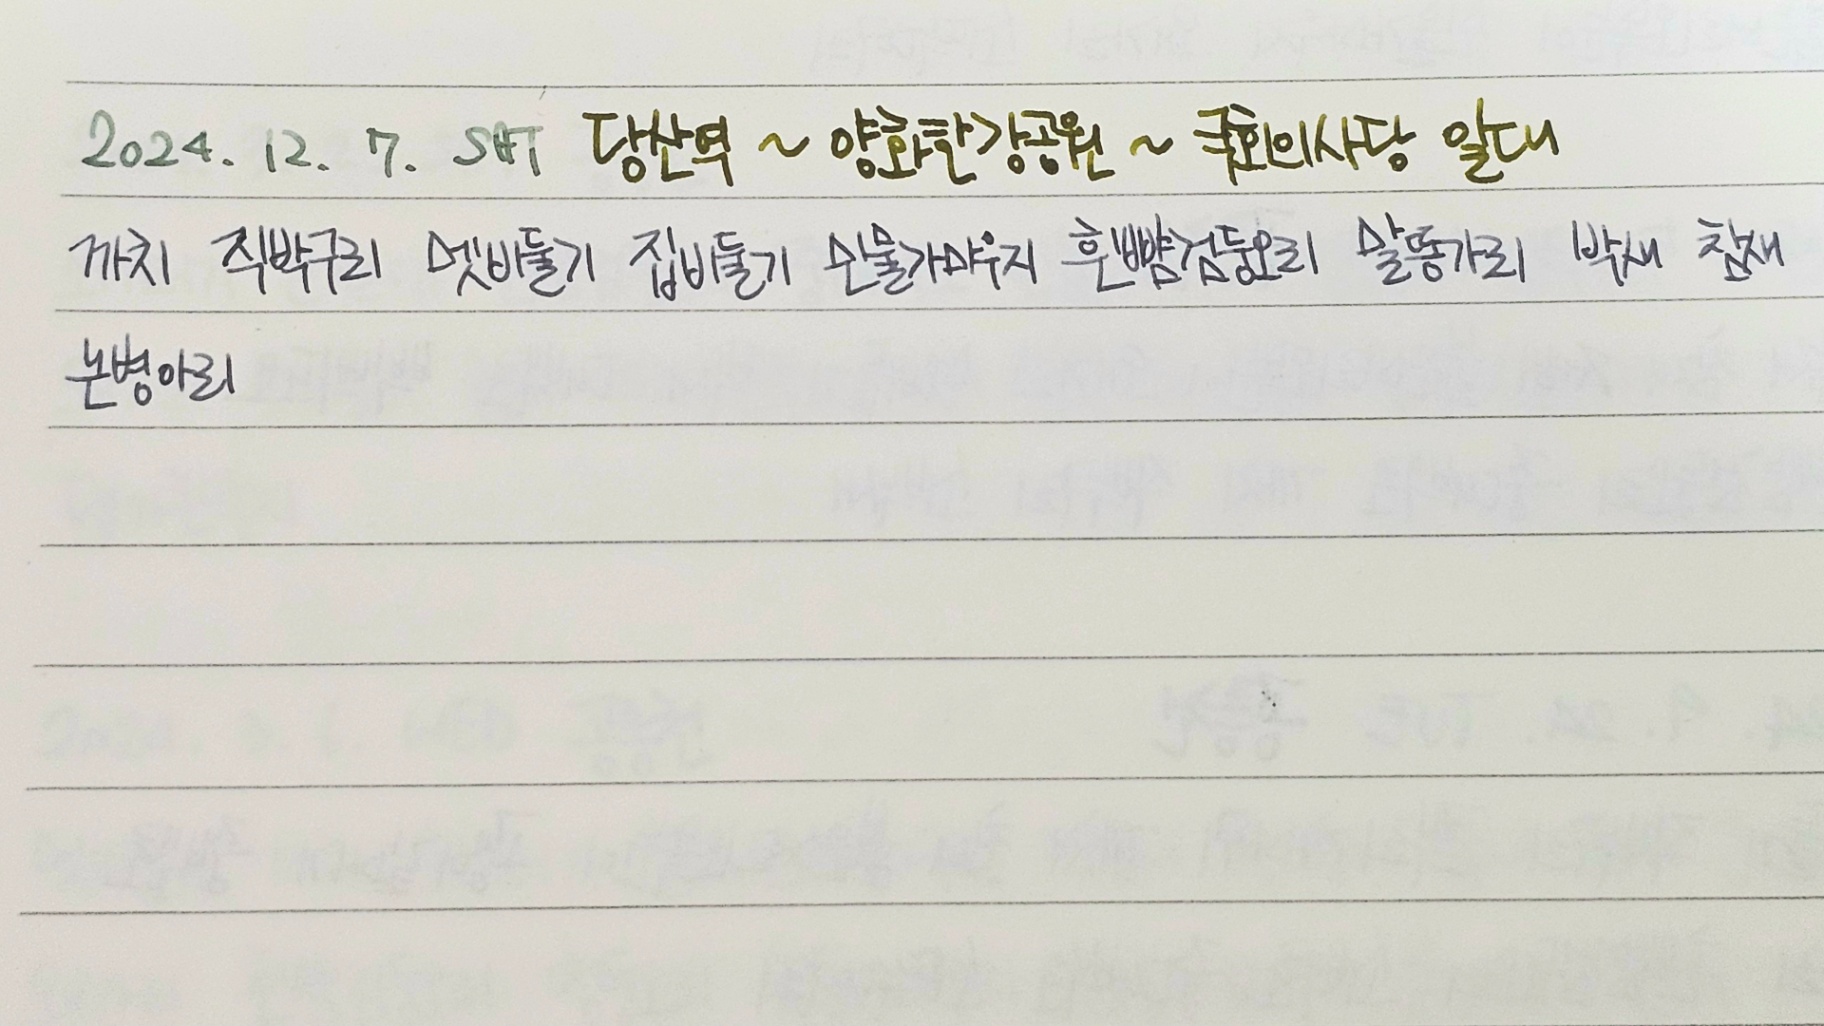 2024. 12. 7. SAT 당산역 ~ 양화한강공원 ~ 국회의사당 일대
까치 직박구리 멧비둘기 집비둘기 민물가마우지 흰뺨검둥오리 말똥가리 박새 참새
논병아리